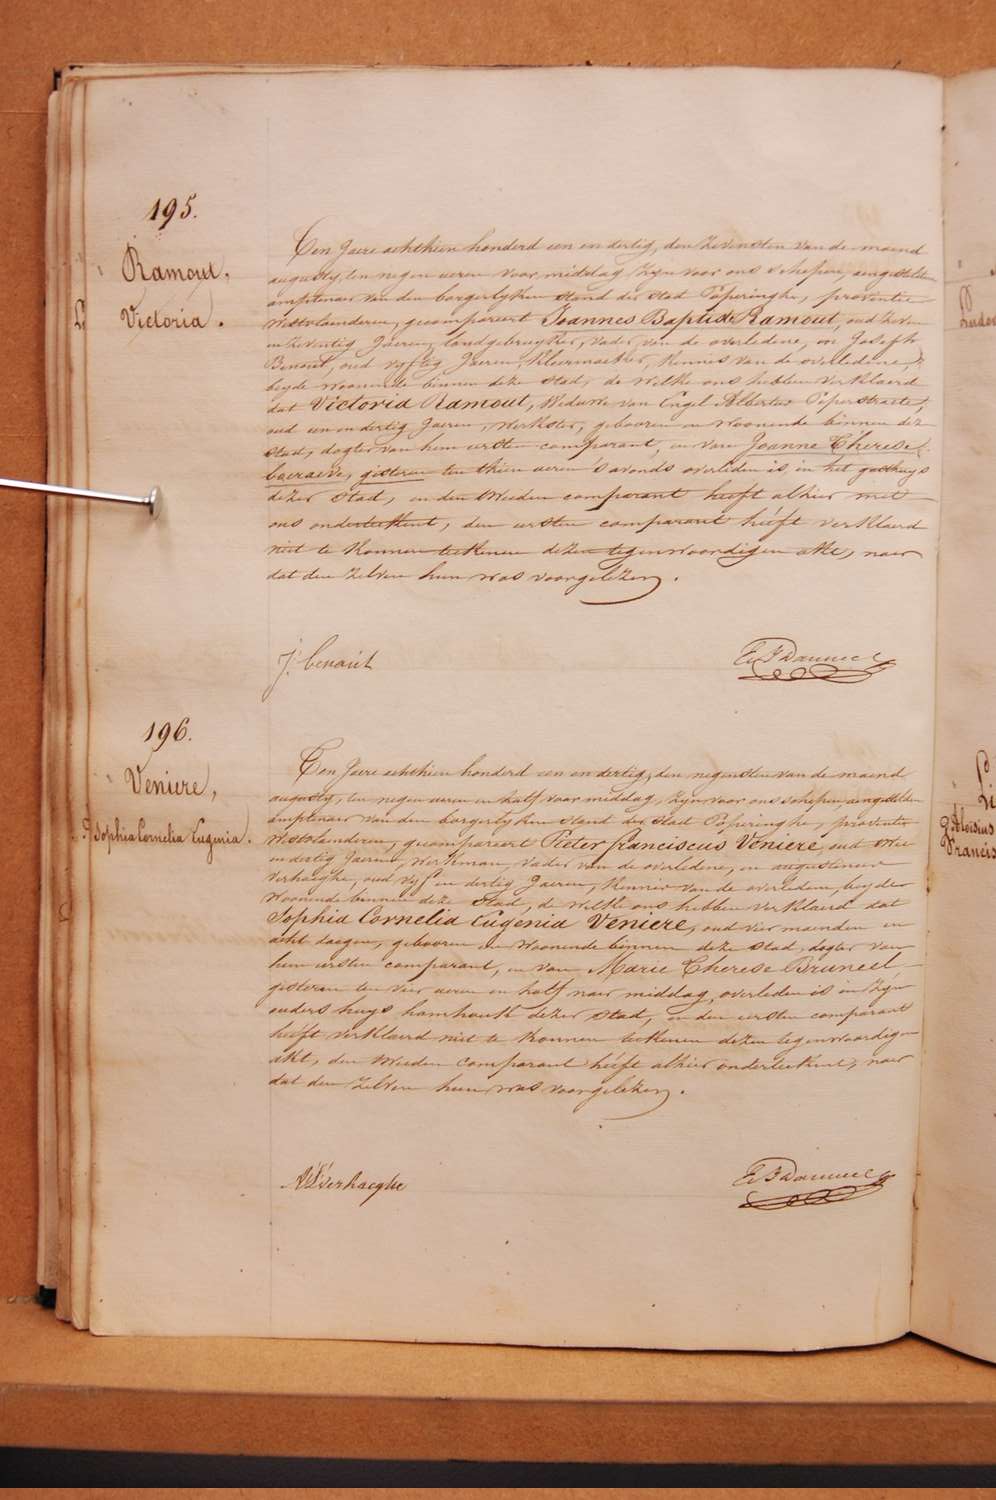 195.
Ramout,
Victoria.
Den Jaere achthien honderd een en dertig, den zevensten van de maend
augusty, ten negen ueren voor middag, zyn voor ons schepen, aengestelden
amptenaer van den borgerlyken stand der stad Poperinghe, provintie
Westvlaenderen, gecompareert Joannes Baptiste Ramout, oud zeven
en zeventig Jaeren, landgebruyker, vader van de overledene, en Joseph
Benout, oud vyftig Jaeren, Kleermaeker, Kennis van de overledene,
beyde woonende binnen deze stad, de welke ons hebben verklaerd
dat Victoria Ramout, Weduwe van Engel Albertus Peperstraete,
oud een en dertig Jaeren, werkster, gebooren en woonende binnen deze
stad, dogter van hem eersten comparant, en van Joanne Therese
boeraeve, gisteren ten thien ueren s'avonds overleden is, in het gasthuys
dezer stad, en den tweeden comparant heeft alhier met
ons onderteekent, den eersten comparant heeft verklaerd
niet te konnen teekenen dezen tegenwoordigen akte, naer
dat den zelven hun was voorgelezen.
J: benout
196.
Veniere,
Sophia Cornelia Eugenia.
Den Jaere achthien honderd een en dertig, den negensten van de maend
augusty, ten negen ueren en half voor middag, zyn voor ons schepen aengestelden
amptenaer van den borgerlyken stand der stad Poperinghe, provintie
Westvlaenderen, gecompareert Pieter franciscus Veniere, oud twee
en dertig Jaeren, Werkman, vader van de overledene, en augustinus
Verhaeghe, oud vyf en dertig Jaeren, Kennis van de overledene, beyde
woonende binnen deze stad, de welke ons hebben verklaerd dat
Sophia Cornelia Eugenia Veniere, oud vier maenden en
acht daegen, gebooren en woonende binnen deze stad, dogter van
hem eersten comparant, en van Marie Therese Bruneel,
gisteren ten vier ueren en half naer middag, overleden is in zyn
ouders huys hamhouk dezer stad, en den eersten comparant
heeft verklaerd niet te konnen teekenen dezen tegenwoordigen
akt, den tweeden comparant heeft alhier onderteekent, naer
dat den zelven hun was voorgelezen.
Verhaeghe
Li
Aloisius
Francis